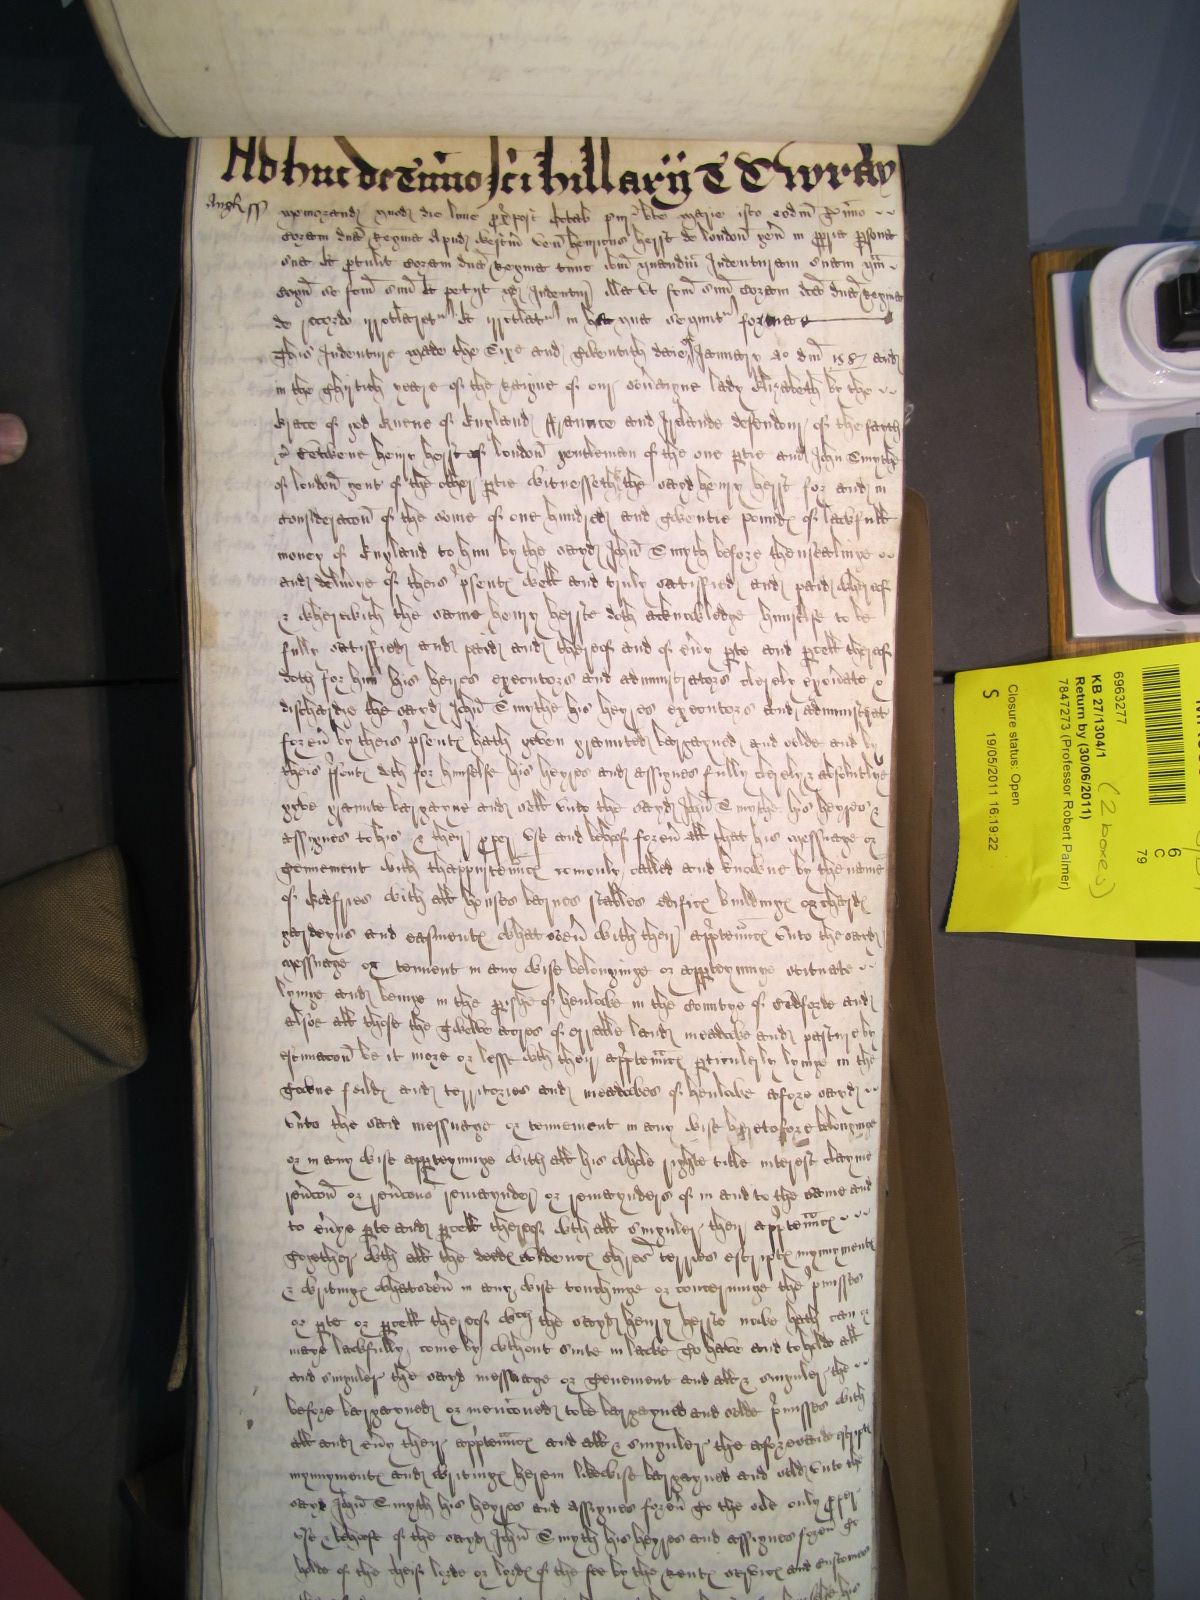 Adhuc de Termino sci hillarij T T wray
Angl ss
memorand quod die lune px post Crastin pur bte marie isto eodm Termino
Coram dna Regina Apud westm ven henricus herst de london gen in ppria psona
sua Et ptulit Coram dna Regina tunc ibm quandm Indenturam suam
Et petijt Indentur illa coram dca dna Regina
de recordo irrotlaret Et irrotlatur in hec que sequntur forma
This Indenture made the Sixe and Twentith daie of January Ao dmi 1587 and
in the Thirtith yeare of the Raigne of our soveraigne lady Elizabeth by the
Grace of god Quene of England ffraunce and Irelande defendour of the fayth
&c Betwene henry herst of london gentleman of the one ptie and John Smythe
of london gent of the other ptie witnesseth the sayd henry herst for and in
consideracon of the some of one hundred and Twentie pounds of lawfull
money of England to him by the sayd John Smyth before thensealinge
and delivre of theis psents well and truly satisfied and paid wherof
& wherwith the same henry herste doth acknowledge himselfe to be
fully satisfied and paid and therof and of evy pte and pcell therof
doth for him his heires executors and administrators clerely exonerate &
discharge the sayd John Smythe his heyres executors and administrat
forev by theis psents hath geven graunted bargayned and solde and by
theis psents doth for himselfe his heyres and assignes fully clerely & absolutlye
gyve graunte bargayne and sell unto the sayd John Smythe his heyres &
assignes to his & their pper use and behoof forev all that his messuage or
Tennement with thappurtennces comonly called and knowne by the name
of with all houses barnes stables edifices buildings orchards
gardeyns and easments whatsoev with their apptennces unto the sayd
messuage or tenment in any wise belonginge or apptayninge scituate
lyinge and beinge in the pishe of henlowe in the Countye of Bedforde and
alsoe all those the Twelve acres of errable land meadowe and pasture by
estimacon be it more or lesse with their apptennces pticulerly lyinge in the
Towne feilds and territories and meadowes of henlowe afore sayd
unto the said messuage or tennement in any wise heretofore belonginge
or in any wise apptayninge with all his whole righte title interest clayme
revcon or revcons remaynder or remaynders of in and to the same and
to evye pte and pcell therof with all singuler their apptennces
Together with all the deeds evidences chres terries escripts mynyments
& writings whatsoev in any wise touchinge or concerninge the pmisses
or pte or pcell therof wch the sayd henry herste nowe hath can or
maye lawfully come by without suite in lawe To have and to holde all
and singuler the sayd messuage or Tenement and all & singuler the
before bargayned or menconed to be bargayned and solde pmisses with
all and evy their apptennces and all & singuler the aforesaide escripts
mynyments and writings herein likewise bargayned and solde unto the
sayd John Smyth his heyres and assignes forev To the ole only pper
use & behoofe of the sayd John Smyth his heyres and assignes forev To
holde of the cheif lorde or lords of the fee by the rents services and customes
6963277
KB 27/1304/1
(2 boxes)
Return by (30/06/2011)
7847273 (Professor Robert Palmer)
Closure status: Open
S 19/05/2011 16:19:22
6
C
79